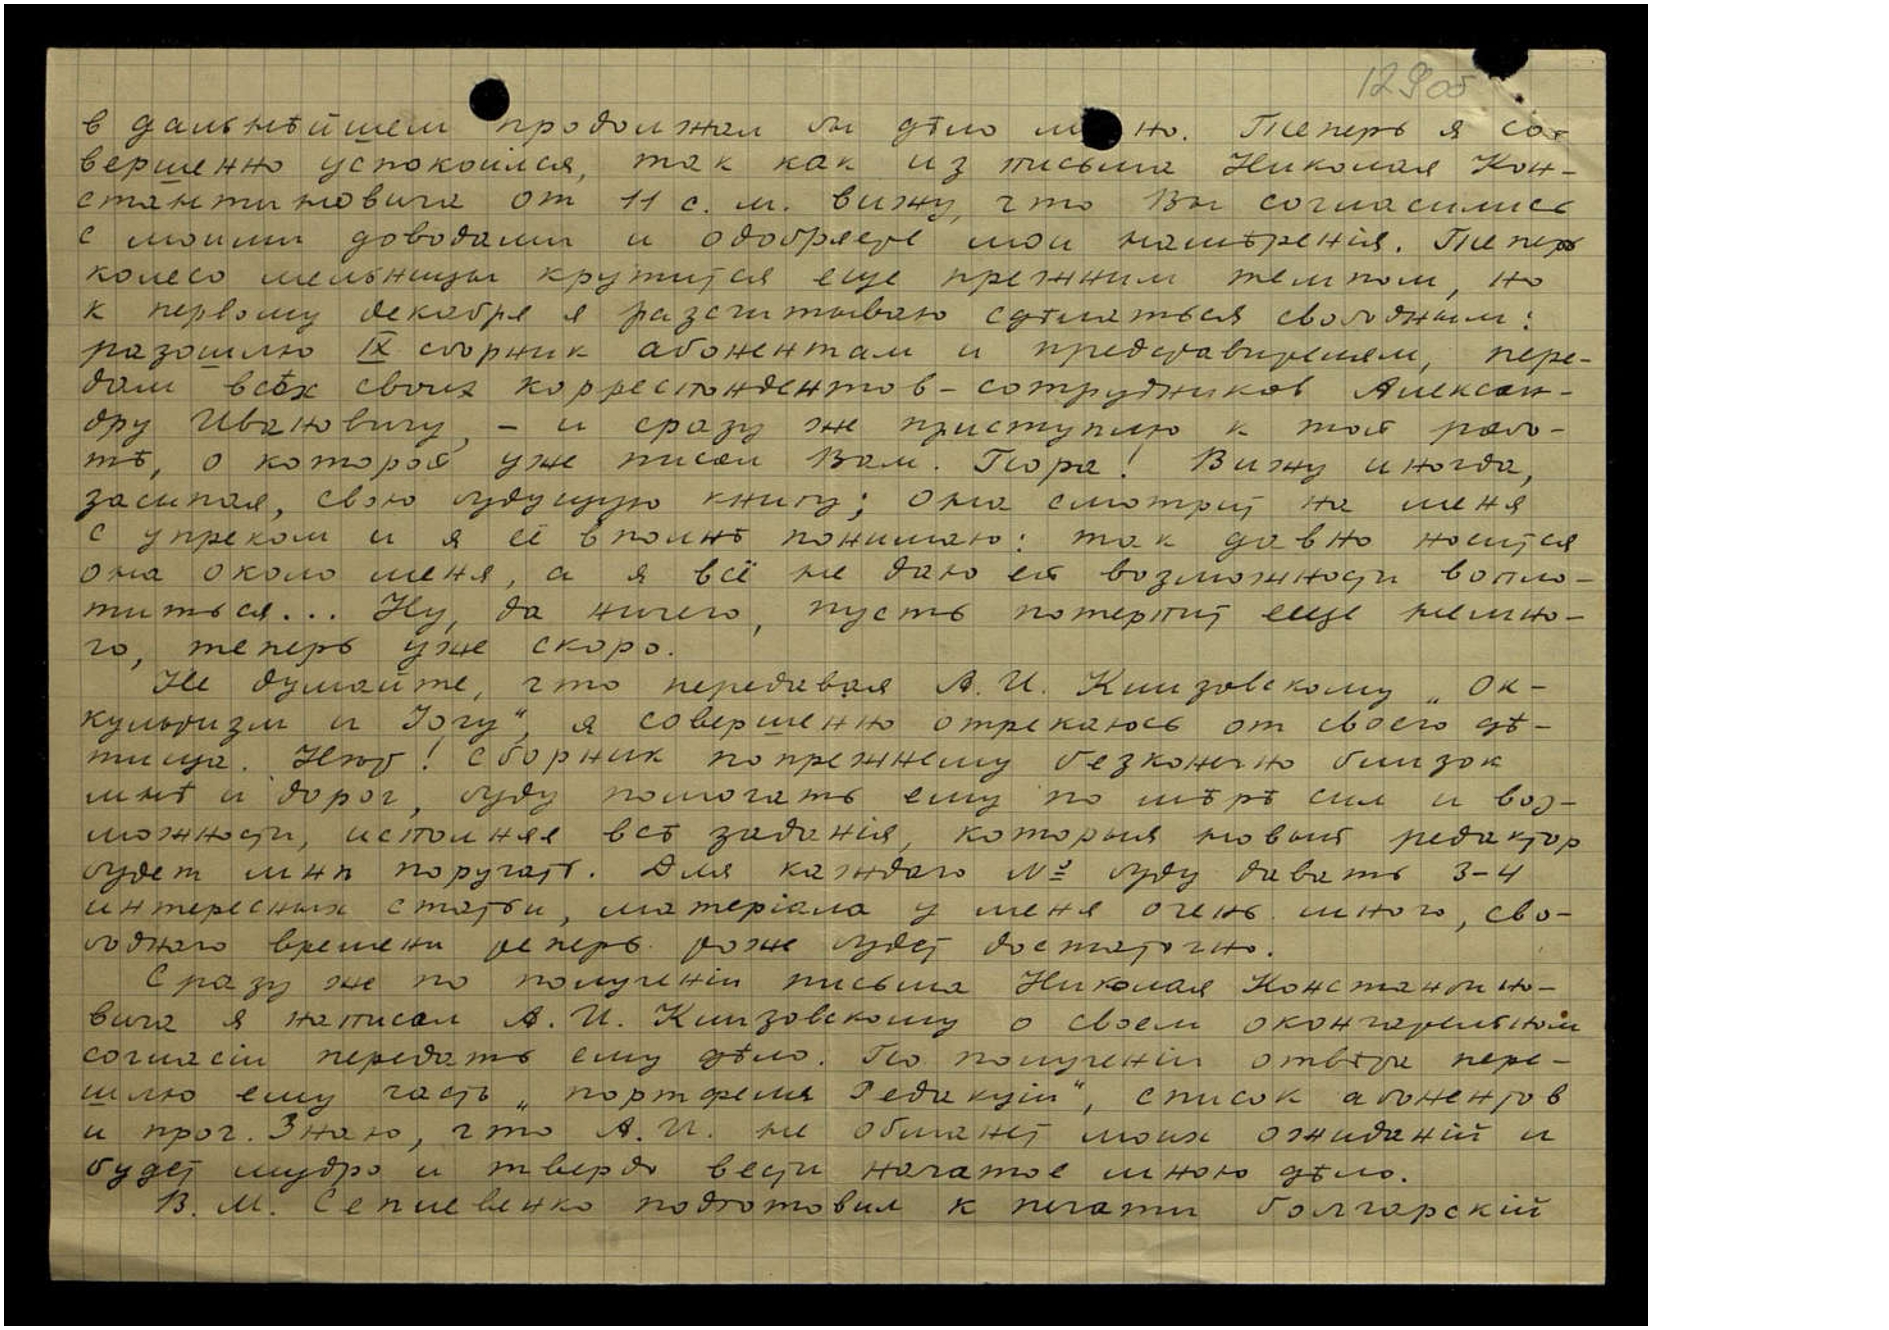 129об
в дальнѣйшем продолжал бы дѣло но. Теперь я со-
вершенно успокоился, так как из письма Николая Кон-
стантиновича от 11 с. м. вижу, что Вы согласились
с моими доводами и одобряете мои намѣренія. Теперь
колесо мельницы крутится еще прежним темпом, но
к первому декабря я разсчитываю сдѣлаться свободным:
разошлю IX сборник абонентам и представителям, пере-
дам всѣх своих корреспондентов-сотрудников Алексан-
дру Ивановичу, – и сразу же приступлю к той рабо-
тѣ, о которой уже писал Вам. Пора! Вижу иногда,
засыпая, свою будущую книгу; она смотрит на меня
с упреком и я её вполнѣ понимаю: так давно носится
она около меня, а я всё не даю ей возможности вопло-
титься... Ну, да ничего, пусть потерпит еще немно-
го, теперь уже скоро.
Не думайте, что передавая А. И. Клизовскому „Ок-
культизм и Iогу“, я совершенно отрекаюсь от своего дѣ-
тища. Нѣт! Сборник попрежнему безконечно близок
мнѣ и дорог, буду помогать ему по мѣрѣ сил и воз-
можности, исполняя всѣ заданія, которыя новый редактор
будет мнѣ поручать. Для каждаго № буду давать 3-4
интересных статьи, матеріала у меня очень много, сво-
боднаго времени теперь тоже будет достаточно.
Сразу же по полученіи письма Николая Константино-
вича я написал А. И. Клизовскому о своем окончательном
согласіи передать ему дѣло. По полученіи отвѣта пере-
шлю ему часть „портфеля Редакціи“, список абонентов
и проч. Знаю, что А. И. не обманет моих ожиданій и
будет мудро и твердо вести начатое мною дѣло.
В. М. Сеплевенко подготовил к печати болгарскій